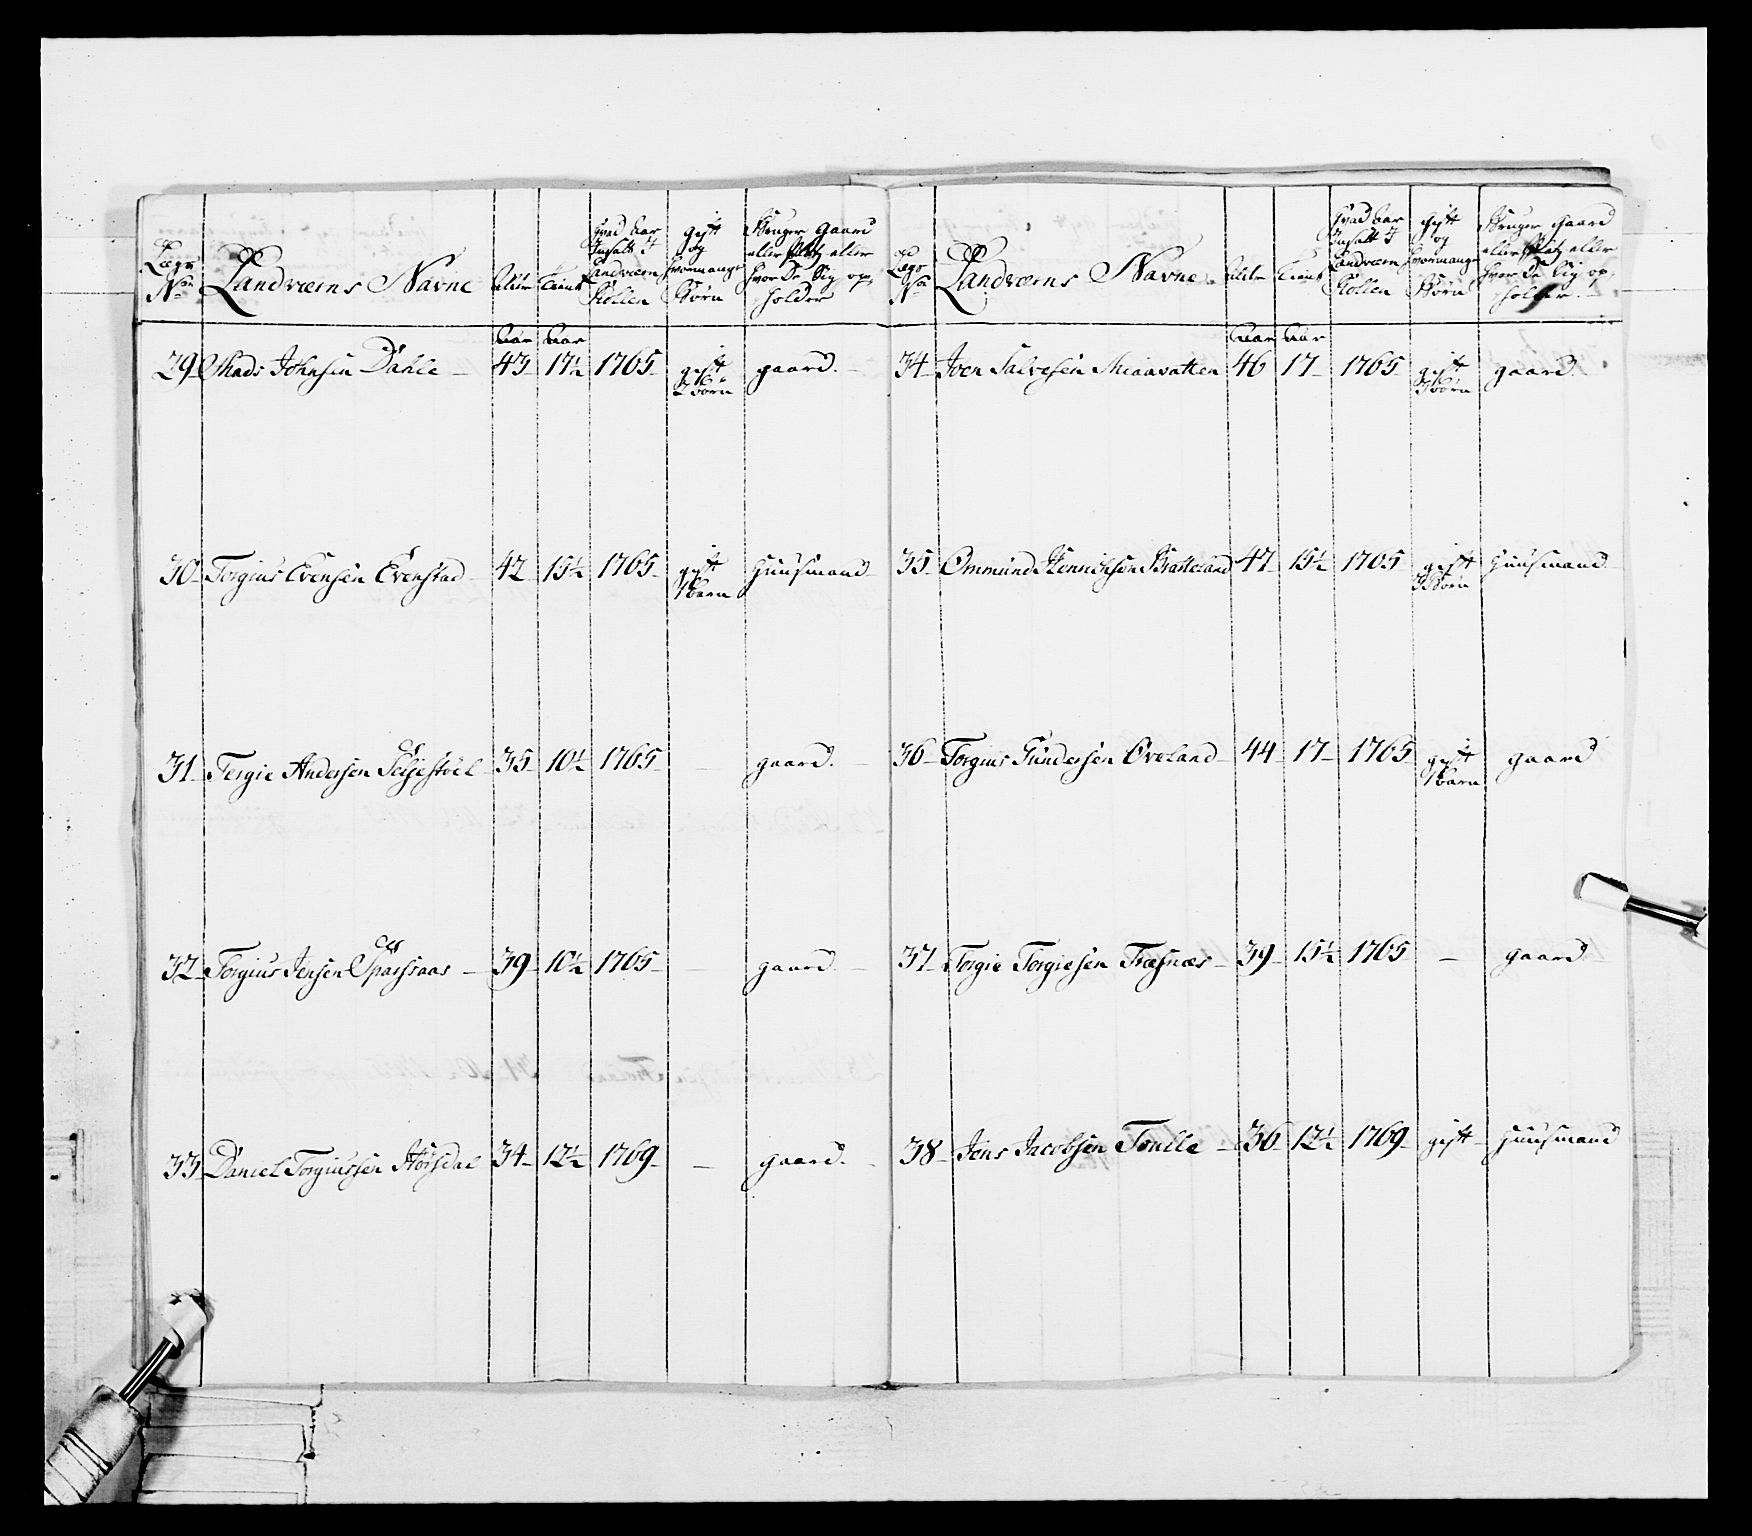 Lægs No Landværns Navne Alder Tient Hvad Aar Indsatt I Landværn Rollen gift og hvormange Børn Bruger Gaard eller Platz eller hvor De Sig opholder
Aar Aar
29 Mads Johnsen Dahle 43 17½ 1765 gift 2 Børn gaard.
30 Torgius Evensen Evenstad 42 15½ 1765 gift 1 barn Huusmand
31 Tergie Andersen Seljestöel 35 10½ 1765 – gaard.
32 Torgius Jensen Opsahsaas 39 10½ 1765 – gaard
33 Daniel Torgiussen Körsdal 34 12½ 1769 – gaard.
Lægs No Landværns Navne Alder Tient Hvad Aar Indsatt I Landværn Rollen gift og hvormange Børn Bruger Gaard eller Platz eller hvor De Sig opholder
Aar Aar
34 Joen Salvesen Miaavatten 46 17 1765 gift 3 Børn gaard.
35 Ommund Hennichsen Bratteland 47 15½ 1765 gift 3 Børn Huusmand
36 Torgius Gundersen Öveland 44 17 1765 gift 1 barn gaard
37 Torgie Torgiesen Træfnæs 39 15½ 1765 – gaard
38 Jens Jacobsen Tvulle 36 12½ 1769 gift Huusmand